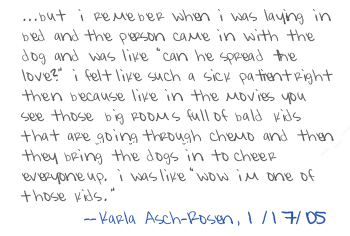 ...but i remeber when i was laying in
bed and the person came in with the
dog and was like "can he spread the
love?" i felt like such a sick patient right
then because like in the movies you
see those big rooms full of bald kids
that are going through chemo and then
they bring the dogs in to cheer
everyone up. i was like "wow im one of
those kids."
--Karla Asch-Rosen, 1/17/05